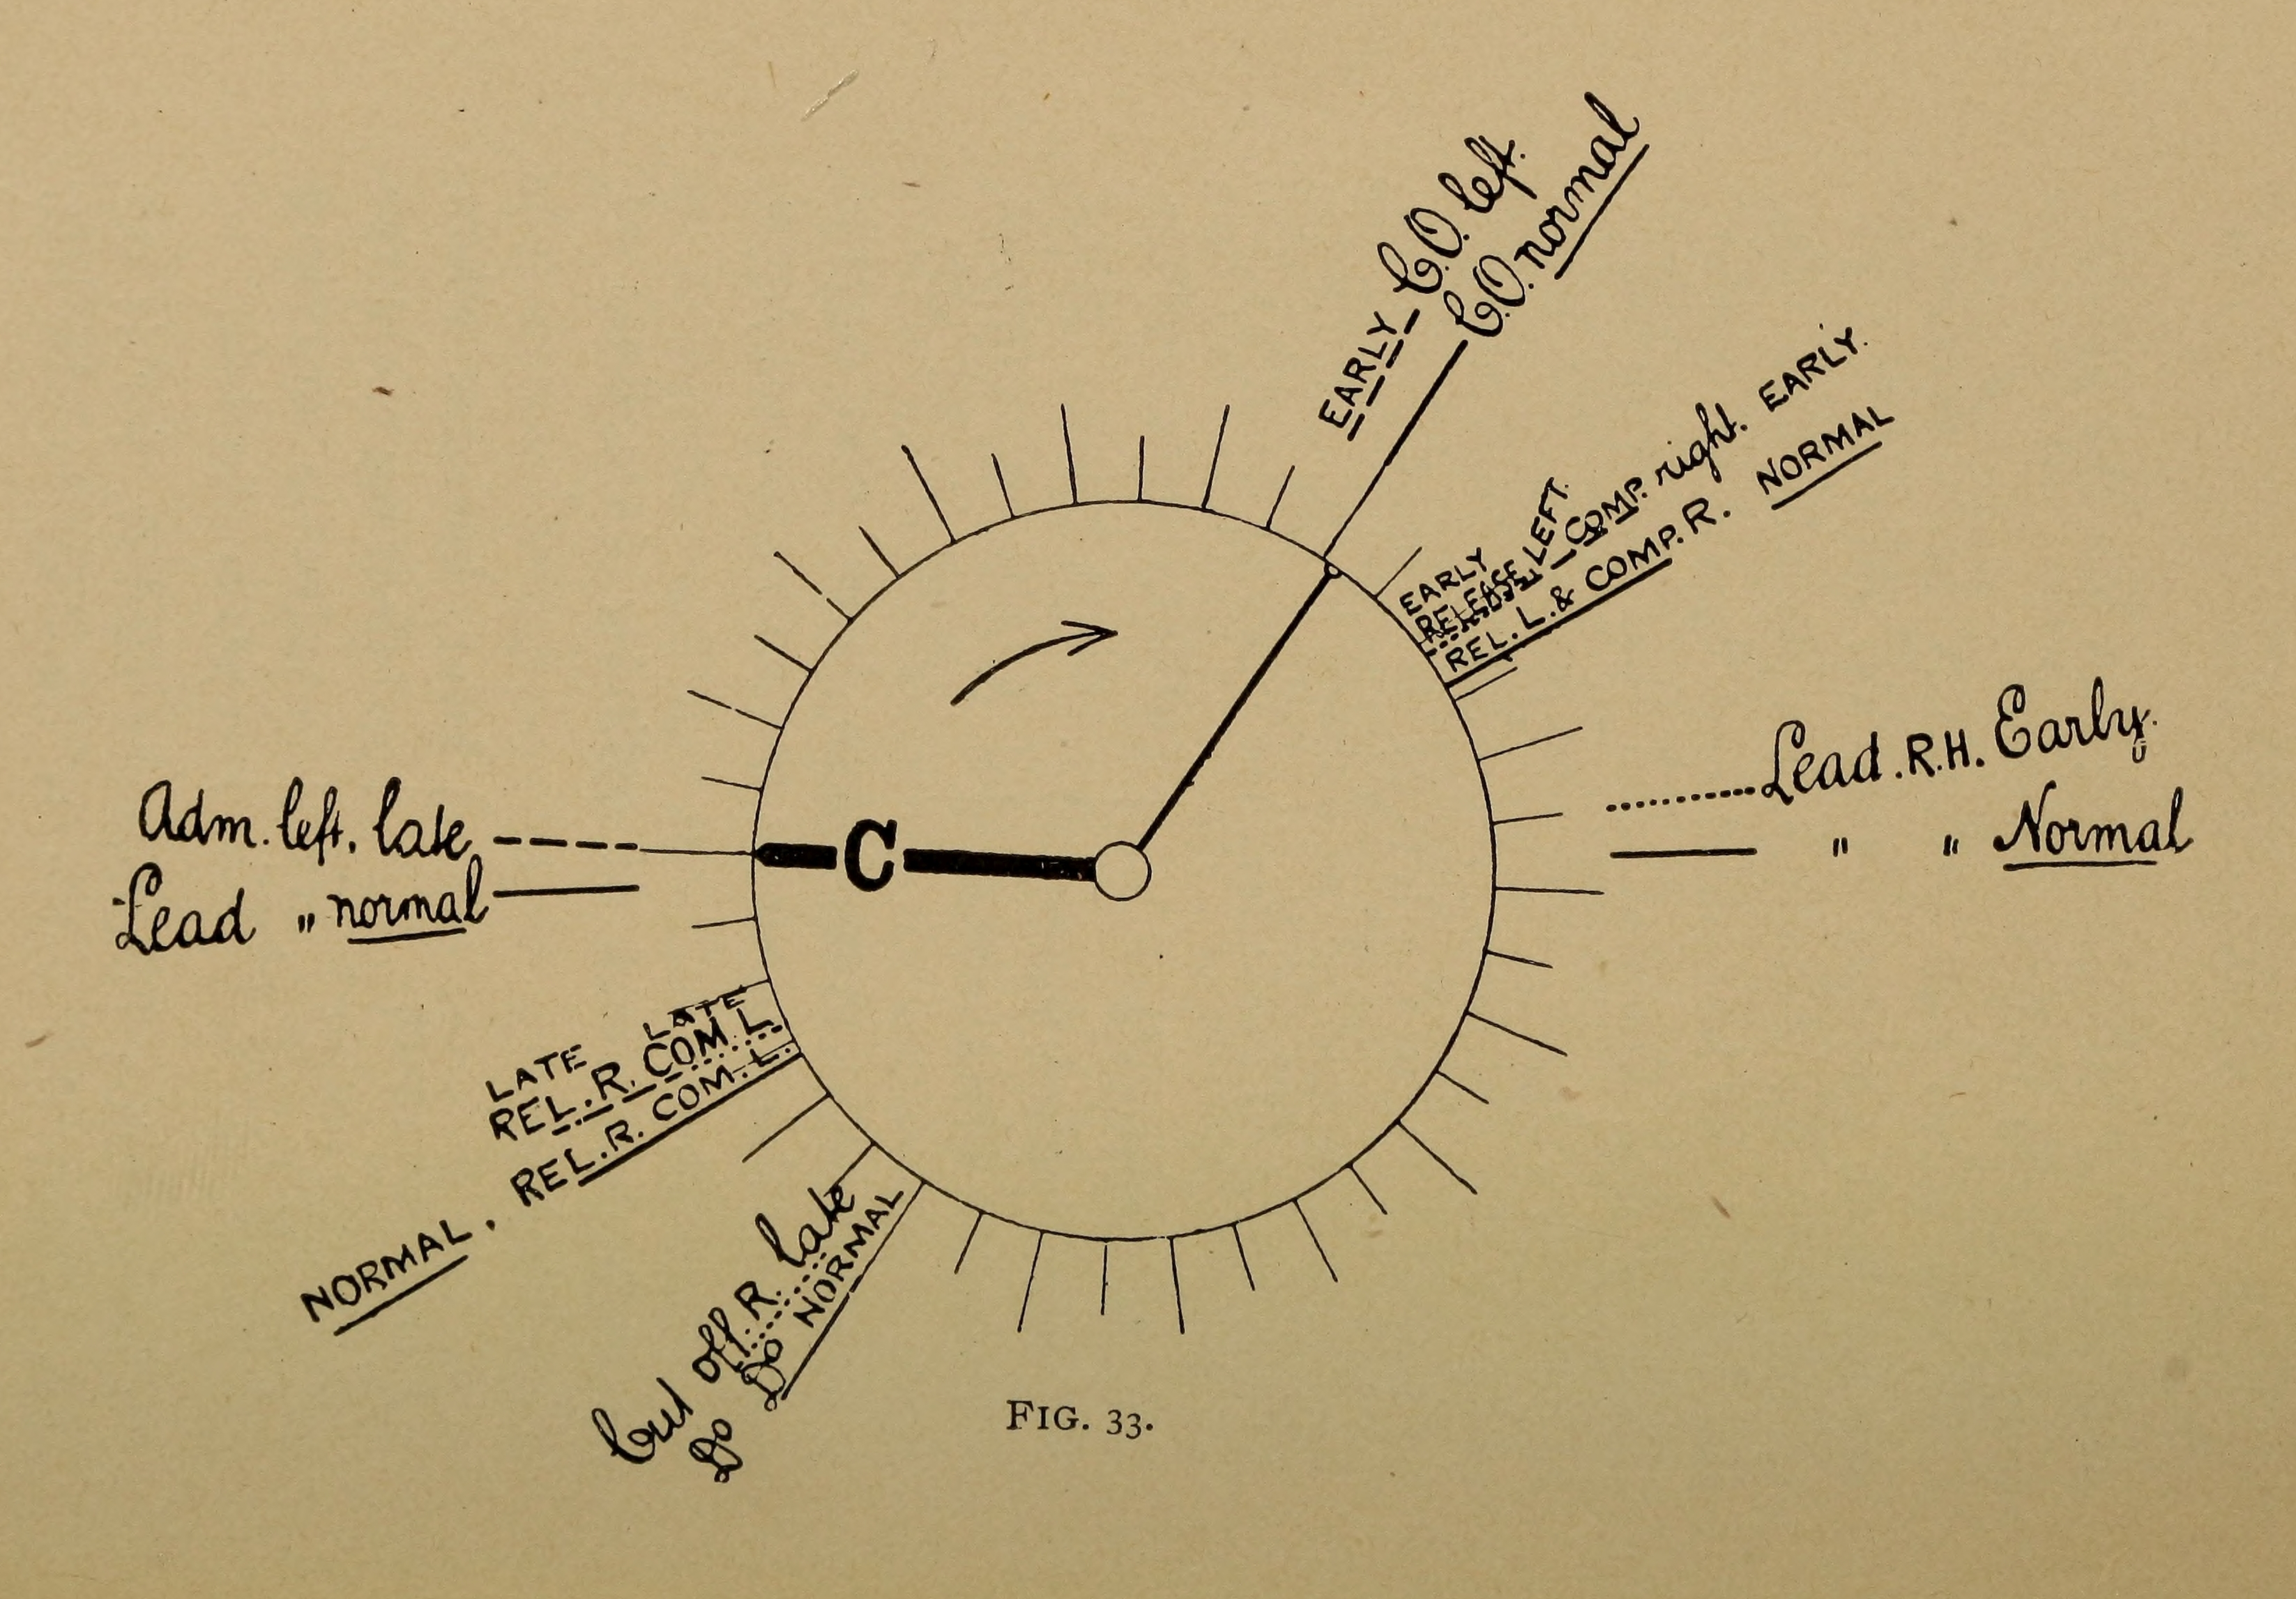 EARLY C.O. left.
C.O. normal
EARLY
RELEASE LEFT.
COMP. right. EARLY.
REL. L. & COMP. R. NORMAL
Lead. R.H. Early.
" " Normal
Adm. left. late
Lead „ normal
C
LATE LATE
REL. R. COM. L.
NORMAL. REL. R. COM. L.
Cut off. R. late
Do Do NORMAL
FIG. 33.